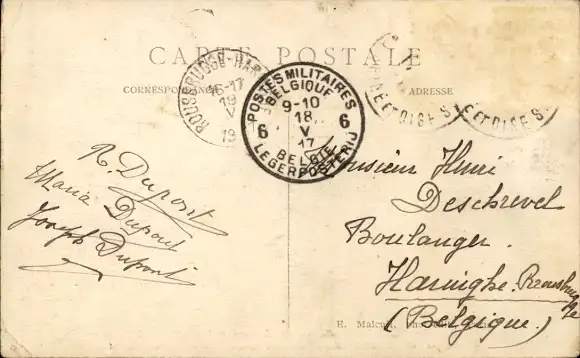 CARTE POSTALE
CORRESPONDANCE
ADRESSE
ROUSBRUGGE-HAR
16-17
19
V
19
POSTES MILITAIRES
BELGIQUE
9-10
6 18 6
V
17
BELGIE
LEGERPOSTERIJ
ET OISE
ET OISE S
R. Dupont
Maria Dupont
Joseph Dupont
Monsieur Henri
Deschrevel
Boulanger.
Haringhe
(Belgique.)
E.